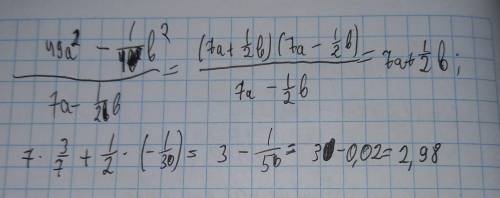 (49a² - 1/4 b²) / (7a - 1/2 b) = (7a + 1/2 b)(7a - 1/2 b) / (7a - 1/2 b) = 7a + 1/2 b;
7 · 3/7 + 1/2 · (-1/30) = 3 - 1/50 = 3 - 0,02 = 2,98